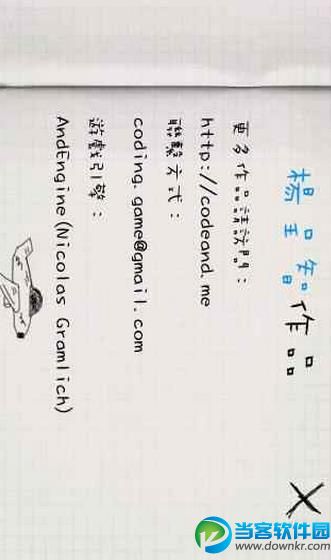 楊智作品
更多作品請訪問：
http://codeand.me
聯繫方式：
coding.game@gmail.com
遊戲引擎：
AndEngine (Nicolas Gramlich)
X
当客软件园
www.downkr.com